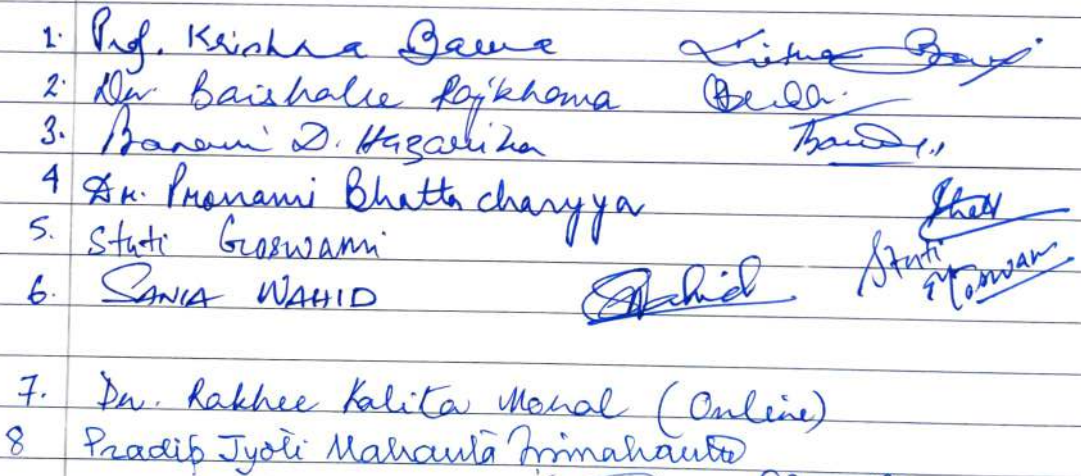 1. Prof. Krishna Barua
2. Dr. Baishalee Rajkhowa
3. Banani D. Hazarika
4 Dr. Pronami Bhattacharyya
5. Stuti Goswami Stuti Goswami
6. SANIA WAHID SWahid
7. Dr. Rakhee Kalita Moral (Online)
8 Pradip Jyoti Mahanta